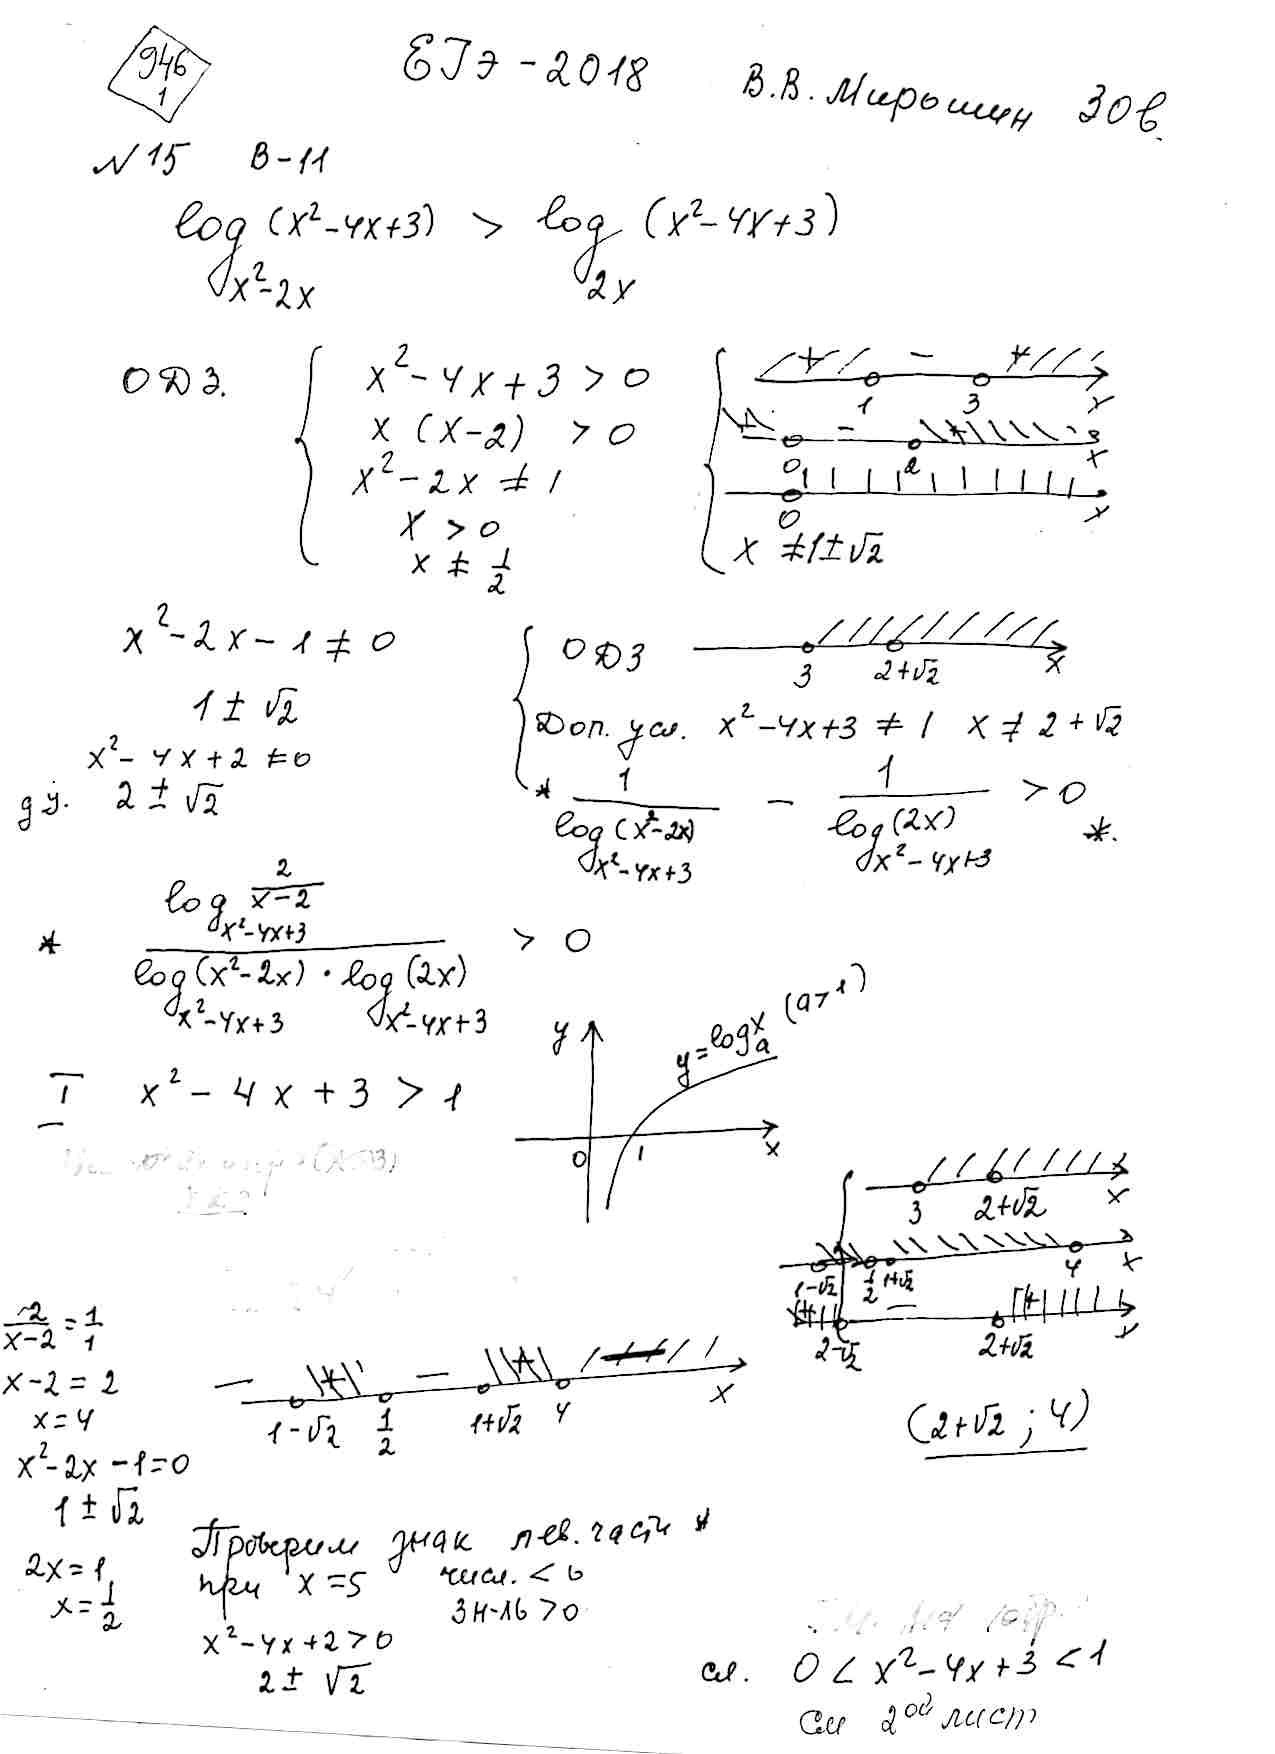 946
1
ЕГЭ - 2018 В.В. Мирошин 30в.
N 15 В-11
log_{x²-2x} (x²-4x+3) > log_{2x} (x²-4x+3)
ОДЗ.
x² - 4x + 3 > 0
x (x-2) > 0
x² - 2x ≠ 1
x > 0
x ≠ 1/2
+ - +
1 3 x
+ - +
0 2 x
0 x
x ≠ 1±√2
x² - 2x - 1 ≠ 0
1 ± √2
x² - 4x + 2 ≠ 0
ду. 2 ± √2
ОДЗ 3 2+√2 x
Доп. усл. x² - 4x + 3 ≠ 1 x ≠ 2 + √2
* 1/(log_{x²-4x+3} (x²-2x)) - 1/(log_{x²-4x+3} (2x)) > 0 *.
* (log_{x²-4x+3} 2/(x-2))/(log_{x²-4x+3} (x²-2x) · log_{x²-4x+3} (2x)) > 0
I x² - 4x + 3 > 1
y y = log_a x (a>1)
0 1 x
3 2+√2 x
1-√2 1/2 1+√2 4 x
+ - +
2-√2 2+√2 x
(2+√2 ; 4)
2/(x-2) = 1/1
x-2 = 2
x = 4
x² - 2x - 1 = 0
1 ± √2
2x = 1
x = 1/2
- + - + -
1-√2 1/2 1+√2 4 x
Проверим знак лев. части *
при x = 5 числ. < 0
зн-ль > 0
x² - 4x + 2 > 0
2 ± √2
сл. 0 < x² - 4x + 3 < 1
см 2ой лист